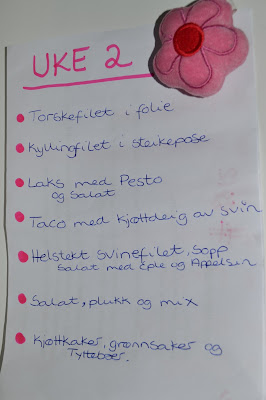 UKE 2
Torskefilet i folie
Kyllingfilet i steikepose
Laks med Pesto
og Salat
Taco med kjøttdeig av svin
Helstekt svinefilet, sopp
Salat med Eple og Appelsin
Salat, plukk og mix
Kjøttkaker, grønnsaker og
Tyttebær.